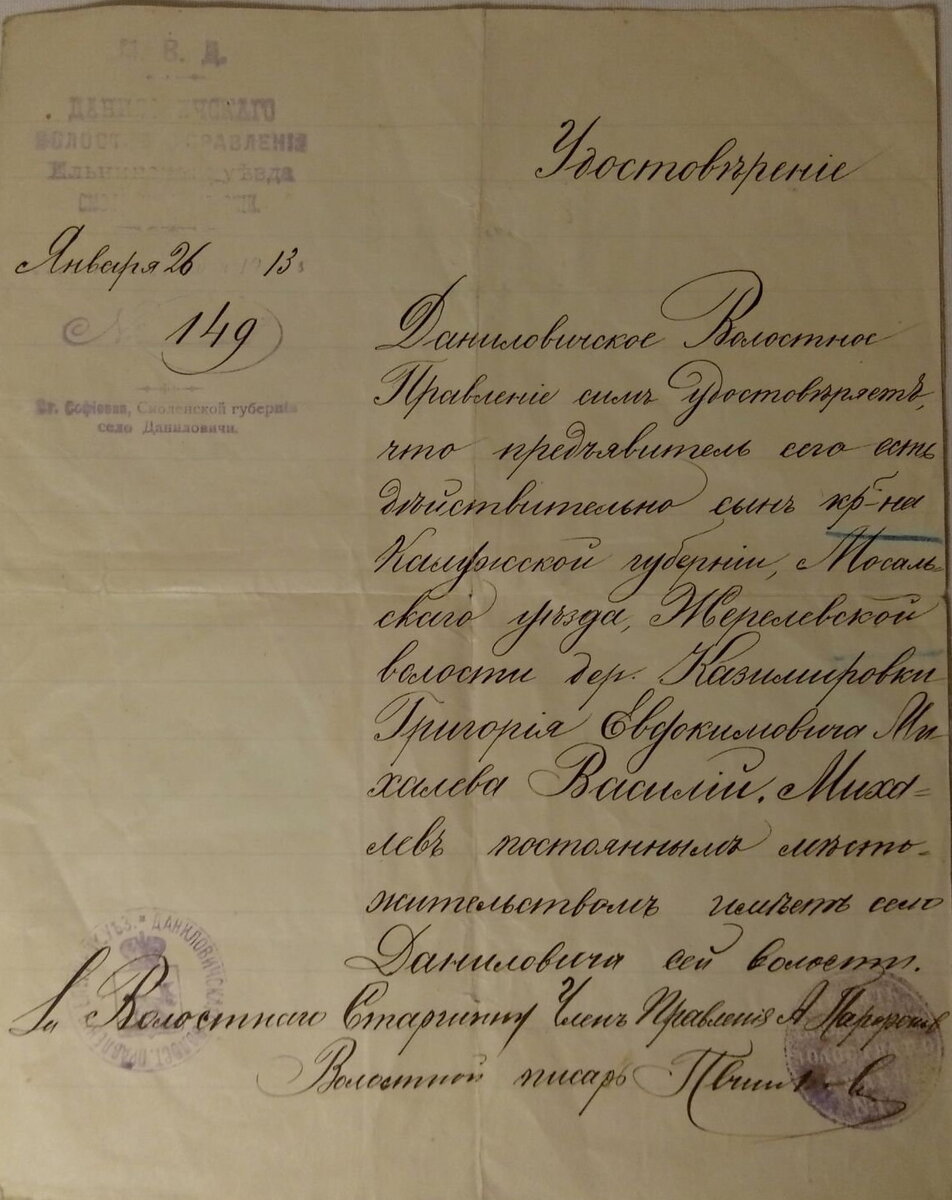 М. В. Д.
ДАНИЛОВИЧСКАГО
ВОЛОСТ ПРАВЛЕНІЯ
Ельнинскаго уѣзда
Января 26 13
№ 149
Ст. Софіевка, Смоленской губерніи
село Даниловичи.
Удостовѣреніе
Даниловичское Волостное
Правленіе симъ удостовѣряетъ,
что предъявитель сего есть
дѣйствительно сынъ кр-на
Калужской губерніи, Мосаль-
скаго уѣзда, Жерелевской
волости дер. Казимировки
Григорія Евдокимовича Ми
халева Василій. Миха-
левъ постояннымъ мѣсто-
жительствомъ имѣетъ село
Даниловичи сей волости.
За Волостного Старшину Членъ Правленія А
Волостной писарь
ДАНИЛОВИЧСКА ВОЛОСТ. ПРАВЛЕ